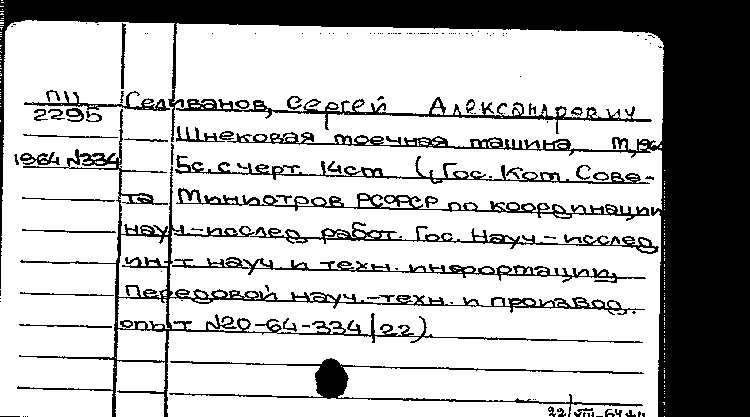 ПЦ
2295
1964 №334
Селиванов, Сергей Александрович
Шнековая моечная машина, М, 1964
5с. с черт. 14см (Гос. Ком. Сове-
та Министров РСФСР по координации
науч.-исслед. работ. Гос. Науч-исслед.
ин-т науч и техн. информации.
Передовой науч.-техн. и производ.
опыт №20-64-334/22).
22/VIII-64